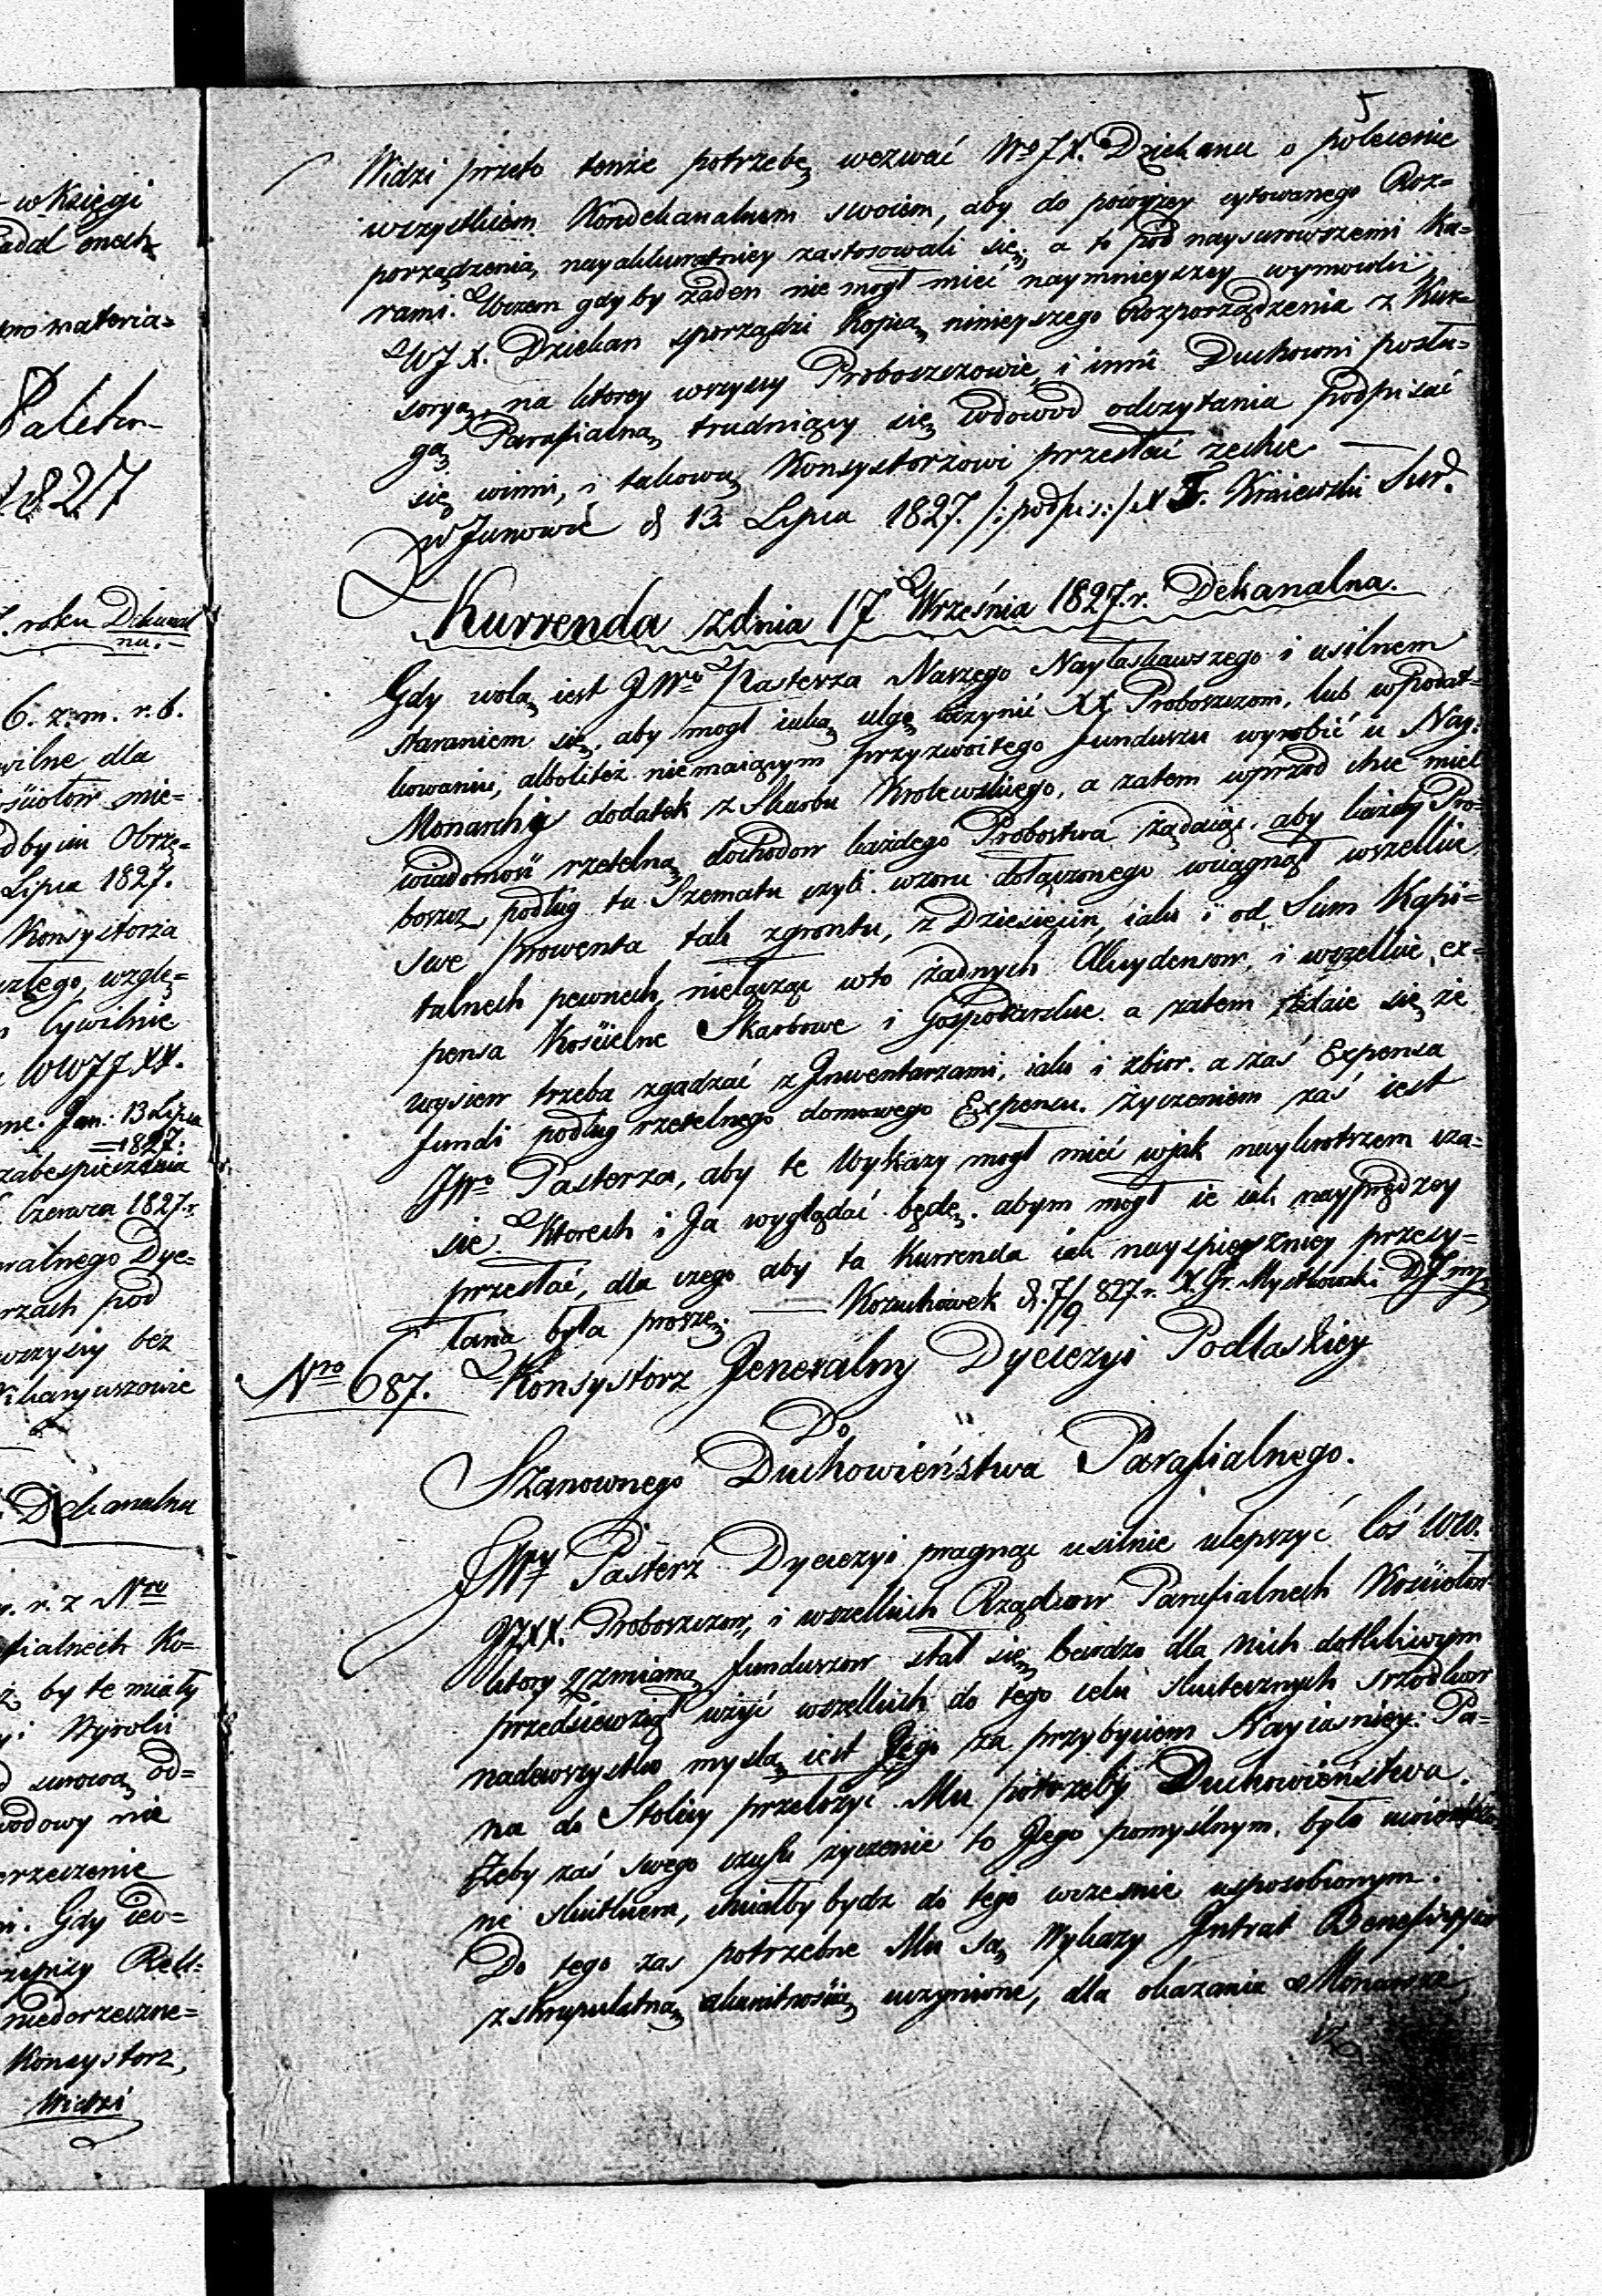 w Księgi
onech
materia=
1827
roku Dekanal
na.
6. z. m. r. b.
wilne dla
Lipca 1827.
Konsystorza
cywilnie
WWJJXX.
13 Lipca
=1827:
zabespieczenia
Czerwca 1827 r.
ralnego Dye=
rzach pod
wszyscy bez
Dekanalna
r. z Nro
fialnech Ko=
by te miały
surową od=
wodowy nie
Gdy
niedorzeczne=
Konsystorz,
Widzi
5
Widzi przeto tenże potrzebę wezwać Wo JX. Dziekana o polecenie
wszystkiem Kondekanalnem swoiem, aby do powyżey cytowanego Roz=
porządzenia, nayakkuratniey zastosowali się, a to pod naysurowszemi Ka=
rami. Wczem gdyby żaden nie mogł mieć naymnieyszey wymowki,
WJX. Dziekan sporządzi Kopią ninieyszego Rozporządzenia z Kur=
soryą, na ktorey wszyscy Proboszczowie, i inni Duchowni posłu=
gą Parafialną trudniący się, wdowod odczytania podpisać
się winni, i takową Konsystorzowi przesłać zechce
w Janowie d 13. Lipca 1827. /:podpis:/ X T. Kraiewski Sur.
Kurrenda z dnia 17 Września 1827. r. Dekanalna.
Gdy wolą iest JWo Pasterza Naszego Nayłaskawszego i usilnem
staraniem się, aby mogł iaką ulgę uczynić XX Proboszczom, lub w podat=
kowaniu, alboliteż niemaiącym przyzwoitego funduszu wyrobić u Nay.
Monarchy dodatek z Skarbu Krolewskiego, a zatem wprzod chce mieć
wiadomość rzetelną dochodow każdego Probostwa żądaiąc, aby każdy Pro=
boszcz podług tu Szematu czyli wzoru dołączonego wciągnął wszelkie
swe prowenta tak zgrontu, z Dziesięcin, iako i od Sum Kapi=
talnech pewnech, nielącząc wto żadnych Akcydensow, i wszelkie ex=
pensa Kościelne Skarbowe i Gospodarskie. a zatem zdaie się że
wysiew trzeba zgadzać z Jnwentarzami, iako i zbior. a zaś Expensa
fundi podług rzetelnego domowego Expensu. życzeniem zaś iest
JWo Pasterza, aby te Wykazy mogł mieć wjak naykrotrzem cza=
sie. Ktorech i Ja wyglądać będę, abym mogł ie iak nayprędzey
przesłać, dla czego aby ta Kurrenda iak nayspieszniey przesy=
łana była proszę. Kożuchówek d. 7/9 827 r. X. Gr. Mystkowski D.
Nro 687. Konsystorz Jeneralny Dyecezyi Podlaskiey
Do
Szanownego Duchowieństwa Parafialnego.
JWny Pasterz Dyecezyi pragnąc usilnie ulepszyć los WW.
JJXX. Proboszczow, i wszelkich Rządcow Parafialnech Kościołow
ktory zzmianą funduszow stał się bardzo dla nich dotkliwym
przedsiewziął użyć wszelkich do tego celu skutecznych srzodkow
nadewszystko myslą iest Jego za przybyciem Nayiasniey: Pa=
na do Stolicy przełożyć Mu potrzeby Duchowieństwa.
Żeby zaś swego czasu życzenie to Jego pomyślnym, było
ne skutkiem, chciałby bydz do tego wcześnie usposobionym.
Do tego zas potrzebne Mu są Wykazy Jntrat Beneficyow
z skrupulatną akuratnością uczynione, dla okazania Monarsze,